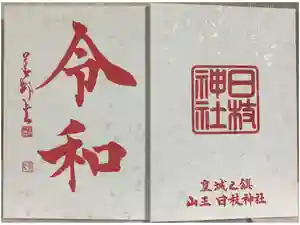 令和
日枝
神社
皇城之鎮
山王 日枝神社